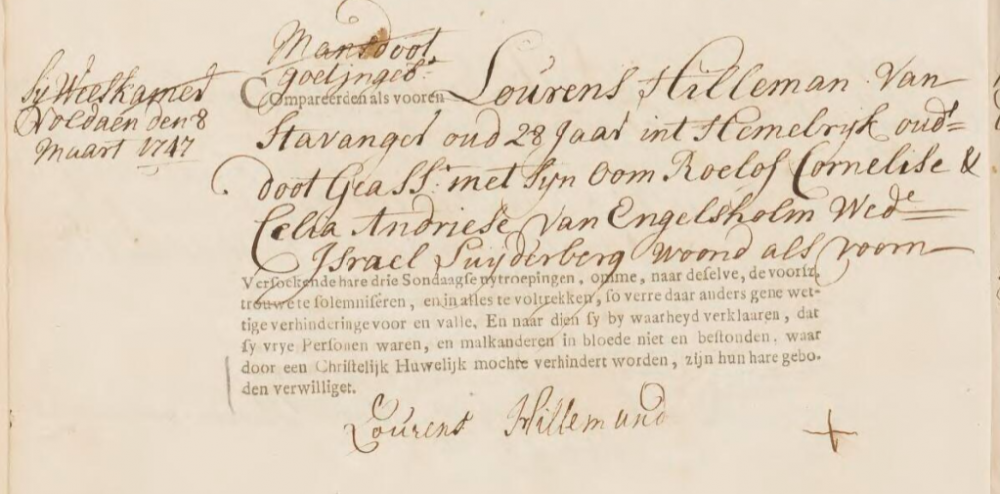 Sy Weeskamer
Voldaen den 8
Maart 1747
Mansdoot
goetjnged:
COmpareerden als vooren Lourens Hilleman van
Stavanger oud 28 Jaar int Hemelryk oud:=
doot Geass: met Syn Oom Roelof Cornelise &
Celia Andriese van Engelsholm Wed:e
Israel Suyderberg woond als voorn
Versoekende hare drie Sondaagse uytroepingen, omme, naar deselve, de voorsz.
trouwe te solemniseren, en in alles te voltrekken, so verre daar anders gene wet-
tige verhinderinge voor en valle. En naar dien sy by waarheyd verklaaren, dat
sy vrye Personen waren, en malkanderen in bloede niet en bestonden, waar
door een Christelijk Huwelijk mochte verhindert worden, zijn hun hare gebo-
den verwilliget.
Lourens Hillemund